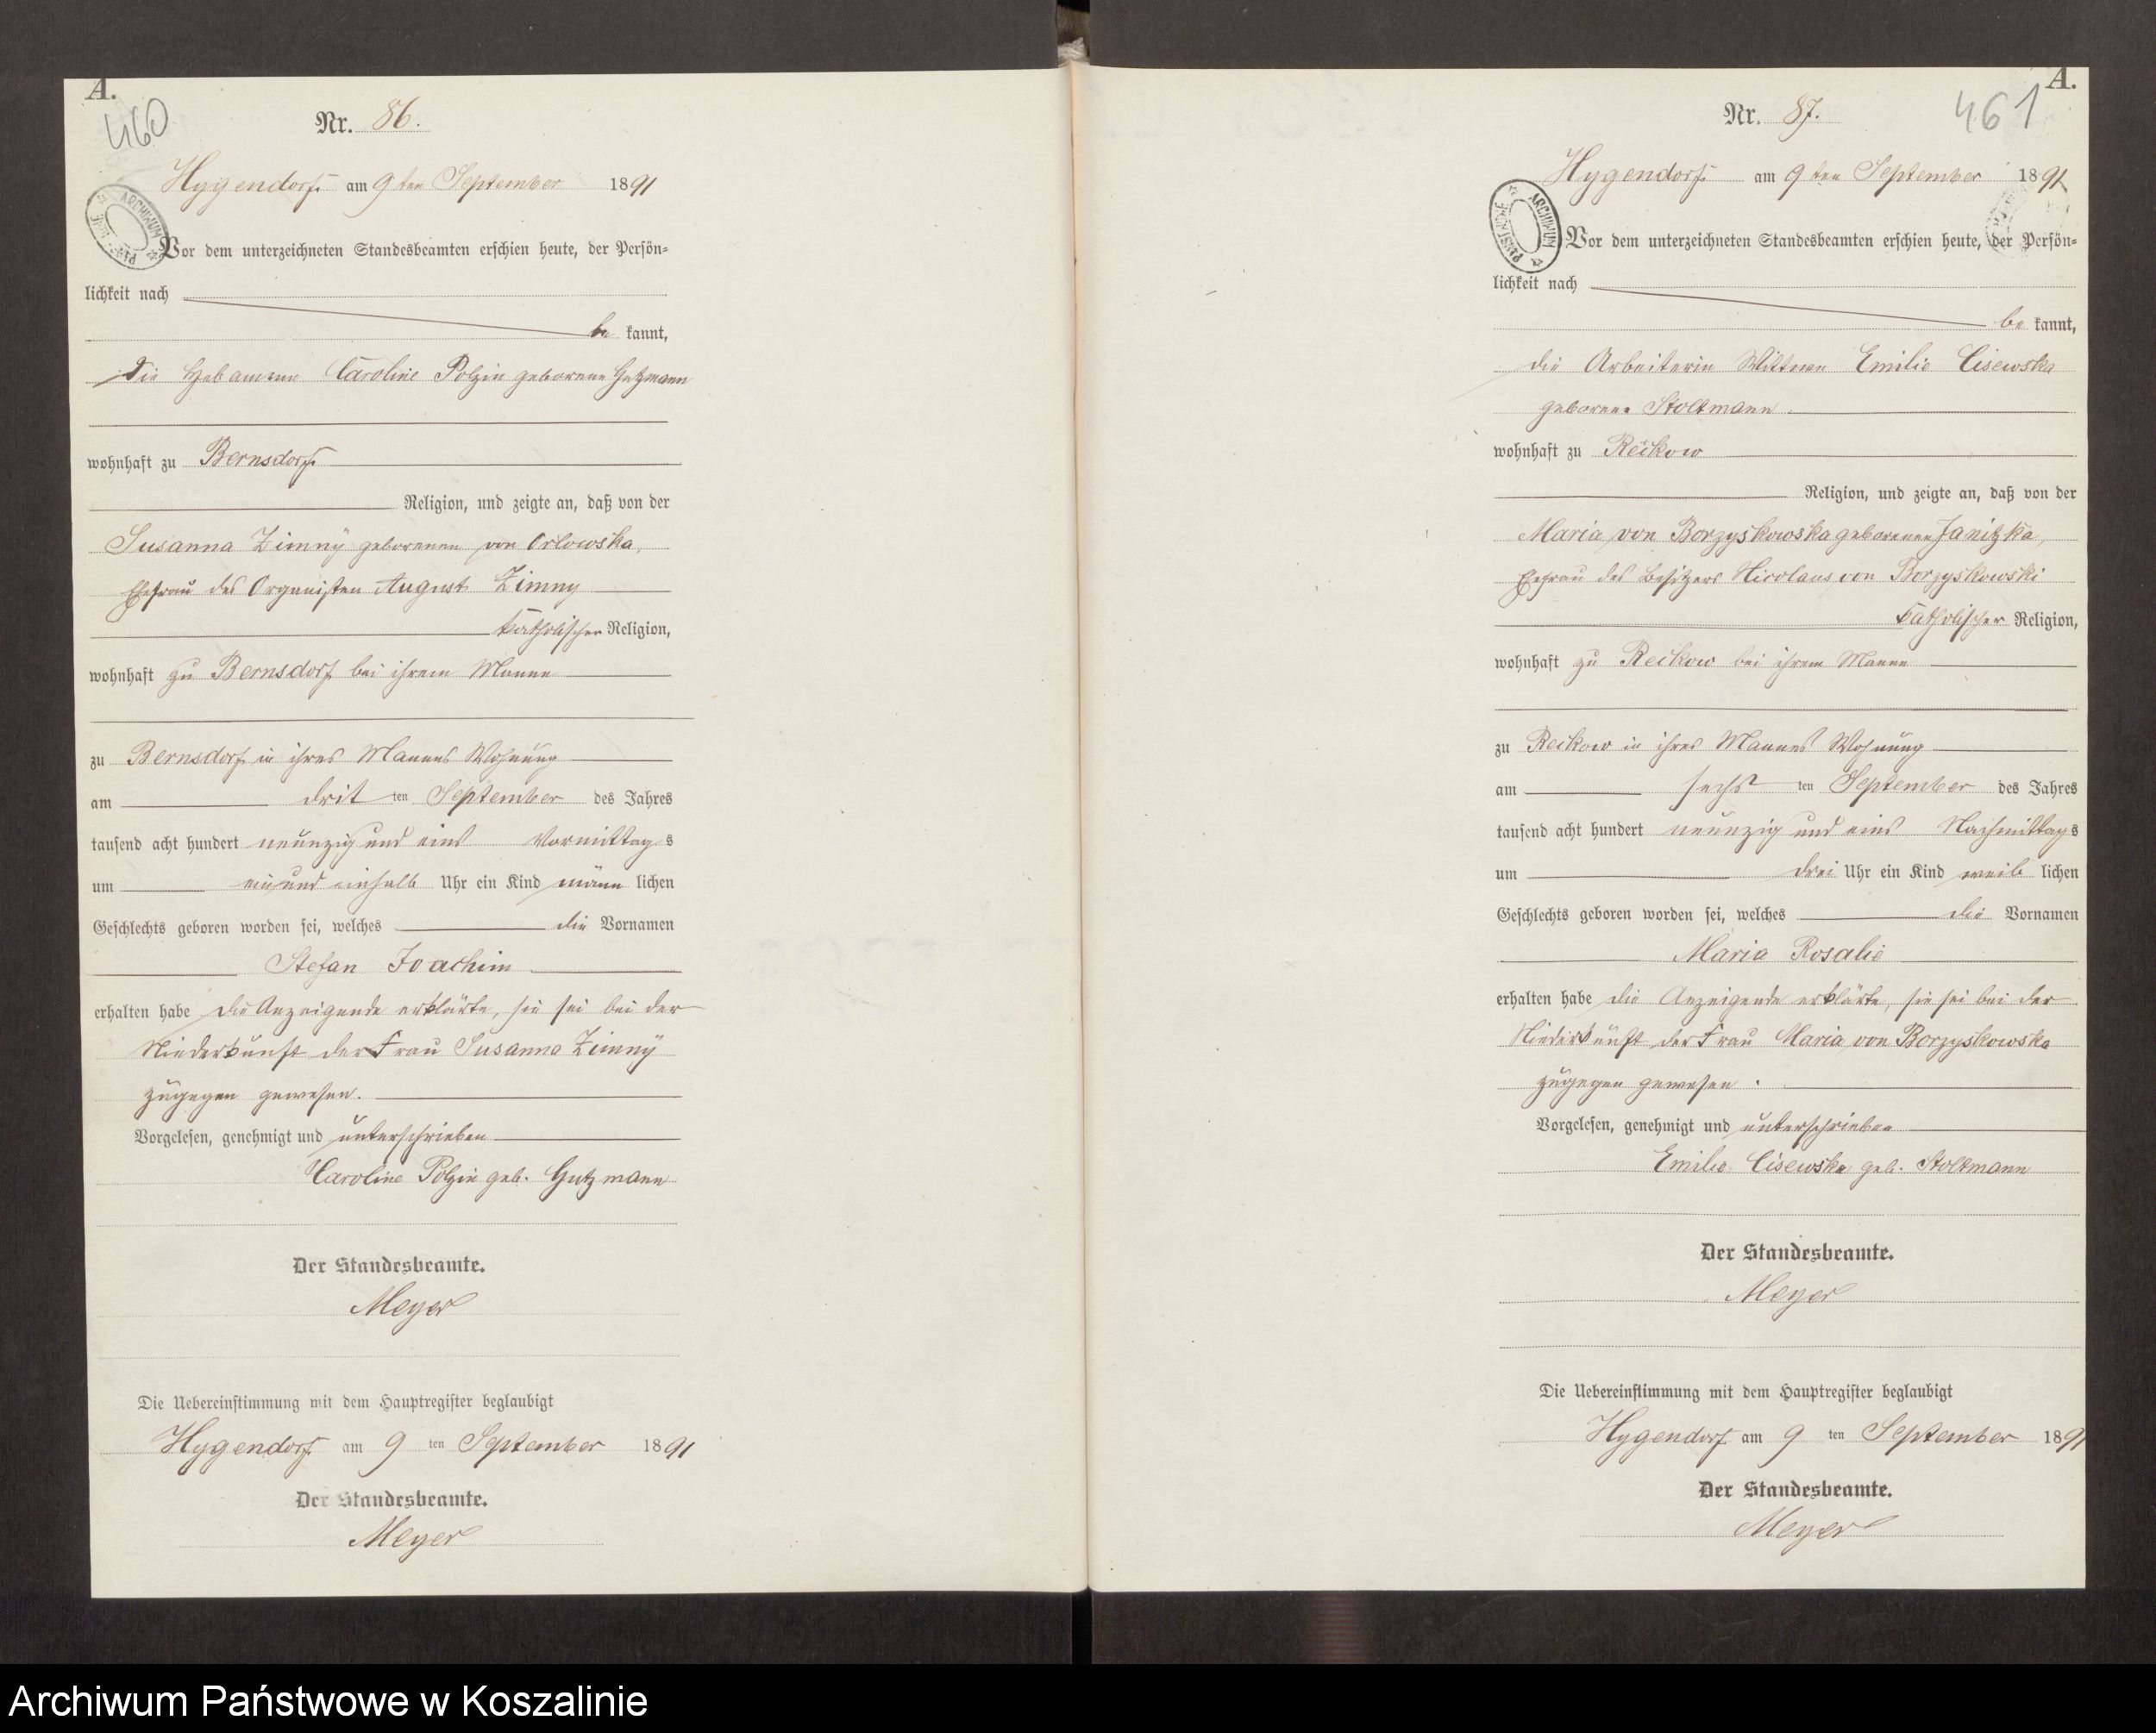 A.
460
Nr. 86.
Hygendorf am 9ten September 1891
ARCHIWUM PAŃSTWOWE
Vor dem unterzeichneten Standesbeamten erschien heute, der Persön-
lichkeit nach
be kannt,
die Hebamme Caroline Polzin geborene Gutzmann
wohnhaft zu Bernsdorf
Religion, und zeigte an, daß von der
Susanna Zimny geborenen von Orlowska,
Ehefrau des Organisten August Zimny
katholischer Religion,
wohnhaft zu Bernsdorf bei ihrem Manne
zu Bernsdorf in ihres Mannes Wohnung
am dritten September des Jahres
tausend acht hundert neunzig und eins Vormittags
um ein und einhalb Uhr ein Kind männ lichen
Geschlechts geboren worden sei, welches die Vornamen
Stefan Joachim
erhalten habe die Anzeigende erklärte, sie sei bei der
Niederkunft der Frau Susanna Zimny
zugegen gewesen.
Vorgelesen, genehmigt und unterschrieben
Caroline Polzin geb. Gutzmann
Der Standesbeamte.
Meyer
Die Uebereinstimmung mit dem Hauptregister beglaubigt
Hygendorf am 9 ten September 1891
Der Standesbeamte.
Meyer
A.
461
Nr. 87.
Hygendorf am 9ten September 1891
ARCHIWUM PAŃSTWOWE
Vor dem unterzeichneten Standesbeamten erschien heute, der Persön-
lichkeit nach
be kannt,
die Arbeiterin Wittwe Emilie Cisewska
geborene Stoltmann
wohnhaft zu Reikow
Religion, und zeigte an, daß von der
Maria von Borzyskowska geborenen Janitzka,
Ehefrau des Besitzers Nicolaus von Borzyskowski
katholischer Religion,
wohnhaft zu Reikow bei ihrem Manne
zu Reikow in ihres Mannes Wohnung
am sechs ten September des Jahres
tausend acht hundert neunzig und eins Nachmittags
um drei Uhr ein Kind weib lichen
Geschlechts geboren worden sei, welches die Vornamen
Maria Rosalie
erhalten habe die Anzeigende erklärte, sie sei bei der
Niederkunft der Frau Maria von Borzyskowska
zugegen gewesen.
Vorgelesen, genehmigt und unterschrieben
Emilie Cisewska geb. Stoltmann
Der Standesbeamte.
Meyer
Die Uebereinstimmung mit dem Hauptregister beglaubigt
Hygendorf am 9 ten September 1891
Der Standesbeamte.
Meyer
Archiwum Państwowe w Koszalinie